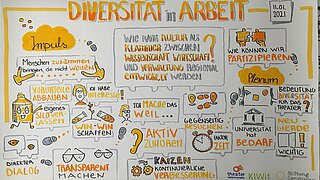 DIVERSITÄT in ARBEIT
11.01
2021
Impuls
Menschen zusammen
bringen, die nicht wollen
WIE KANN KULTUR ALS
KLAMMER ZWISCHEN
WISSENSCHAFT, WIRTSCHAFT
UND VERWALTUNG REGIONAL
ENTWICKELT WERDEN
?
WIE KÖNNEN WIR
PARTIZIPIEREN?
Plenum
VORURTEILE
ABBAUEN
ICH HABE
INTERESSE!
eigenes
SILO VER-
LASSEN
WIN WIN
SCHAFFEN
ICH MACHE DAS
WEIL...
AKTIV
ZUHÖREN
?
GEGENSEITIG
BESUCHEN
ZEIT
UNIVERSITÄT
HAT
BEDARF
BEDEUTUNG
DIVERSITÄT
FÜR DAS
THEATER?
NEU-
GIERDE
WICHTIG
DIREKTER
DIALOG
TRANSPARENT
MACHEN
KAIZEN
KONTINUIERLICHE
VERBESSERUNG
THEATER
KIWit